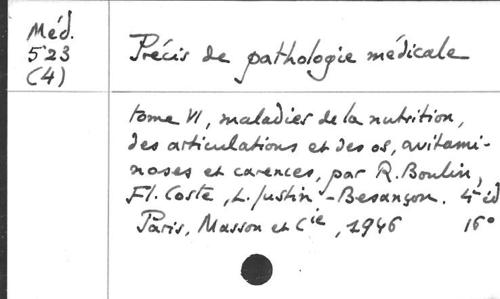 Méd.
523
(4)
Précis de pathologie médicale
tome VI, maladies de la nutrition,
des articulations et des os, avitami-
noses et carences, par R. Boulin,
Fl. Coste, L. Justin-Besançon. 4e éd
Paris, Masson et Cie, 1946 16°